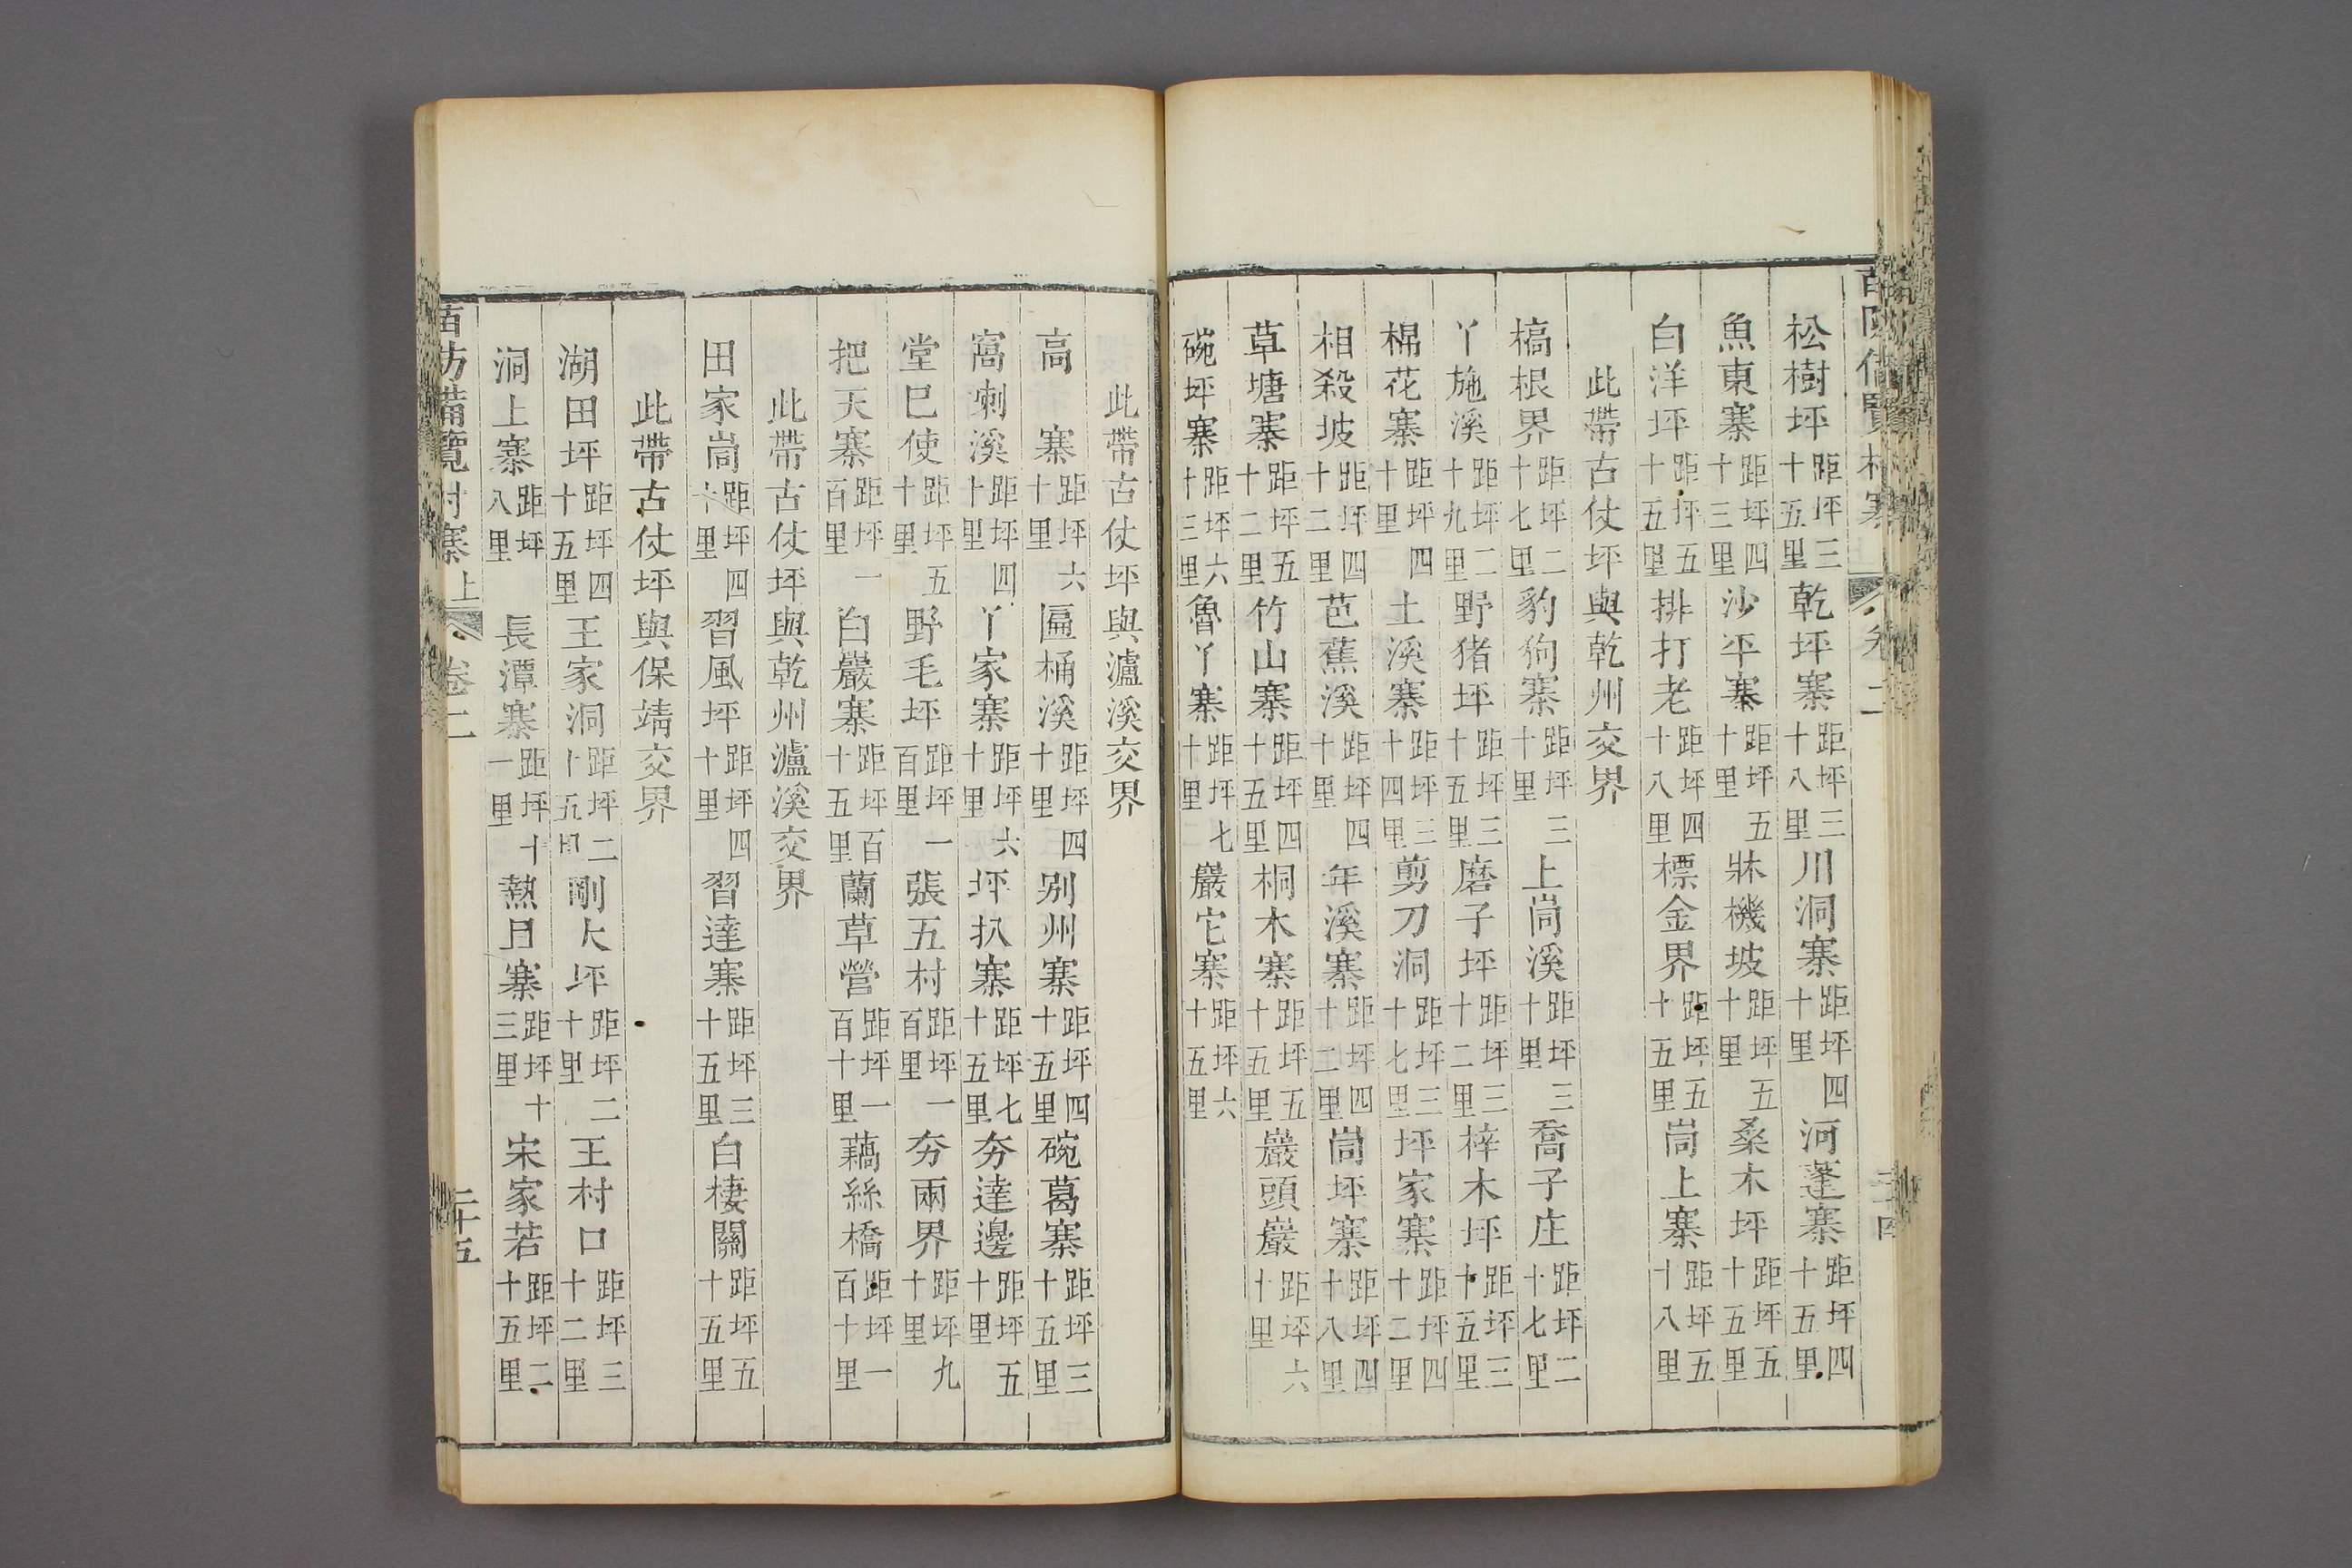 松樹坪距坪三十五里乾坪寨距坪三十八里川洞寨距坪四十里河蓬寨距坪四十五里
魚東寨距坪四十三里沙平寨距坪五十里牀機坡距坪五十里桑木坪距坪五十五里
白洋坪距坪五十五里排打老距坪四十八里標金界距坪五十五里峝上寨距坪五十八里
此帶古仗坪與乾州交界
槁根界距坪二十七里豹狗寨距坪三十里上峝溪距坪三十里喬子庄距坪二十七里
丫施溪距坪二十九里野猪坪距坪三十五里磨子坪距坪三十二里梓木坪距坪三十五里
棉花寨距坪四十里土溪寨距坪三十四里剪刀洞距坪三十七里坪家寨距坪四十二里
相殺坡距坪四十二里芭蕉溪距坪四十里年溪寨距坪四十二里峝坪寨距坪四十八里
草塘寨距坪五十二里竹山寨距坪四十五里桐木寨距坪五十五里巖頭巖距坪六十里
碗坪寨距坪六十三里魯丫寨距坪七十里巖它寨距坪六十五里
此帶古仗坪與瀘溪交界
高寨距坪六十里匾桶溪距坪四十里别州寨距坪四十五里碗葛寨距坪三十五里
窩喇溪距坪四十里丫家寨距坪六十里坪扒寨距坪七十五里夯達邊距坪五十里
堂巳使距坪五十里野毛坪距坪一百里張五村距坪一百里夯兩界距坪九十里
把天寨距坪一百里白巖寨距坪百十五里蘭草營距坪一百十里藕絲橋距坪一百十里
此帶古仗坪與乾州瀘溪交界
田家峝距坪四十里習風坪距坪四十里習達寨距坪三十五里白棲關距坪五十五里
此帶古仗坪與保靖交界
湖田坪距坪四十五里王家洞距坪二十五里剛大坪距坪二十里王村口距坪三十二里
洞上寨距坪八里長潭寨距坪十一里熱日寨距坪十三里宋家若距坪二十五里
苗防備覽村寨上卷二二十五